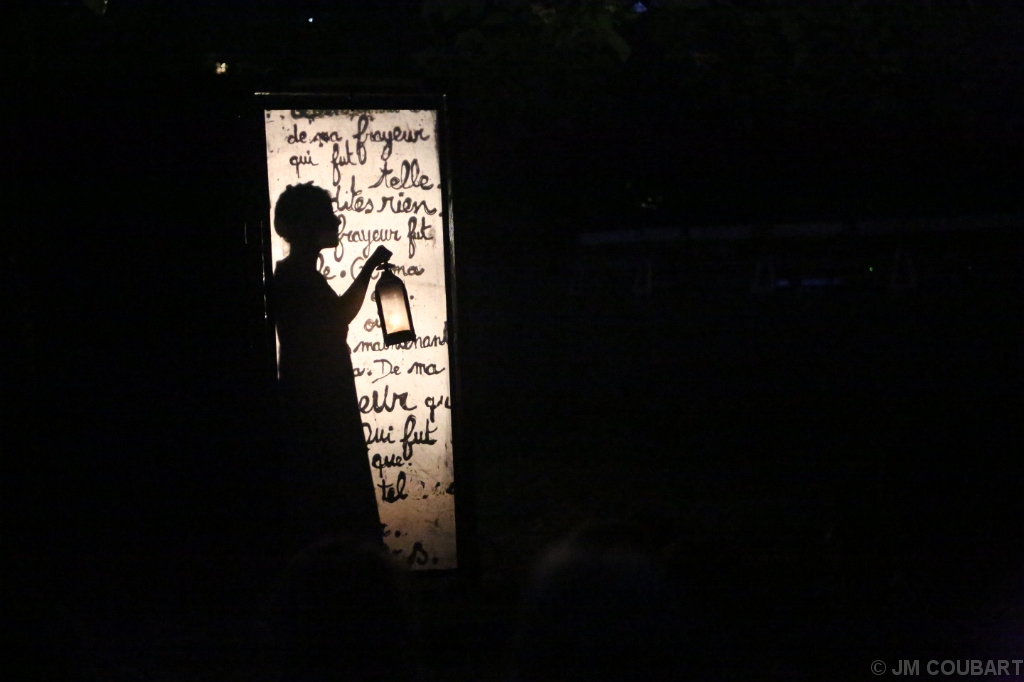 de ma frayeur
qui fut
telle.
dites rien.
frayeur fut
ma
maintenant
De ma
eur qu
Qui fut
que.
tel
s.
© JM COUBART